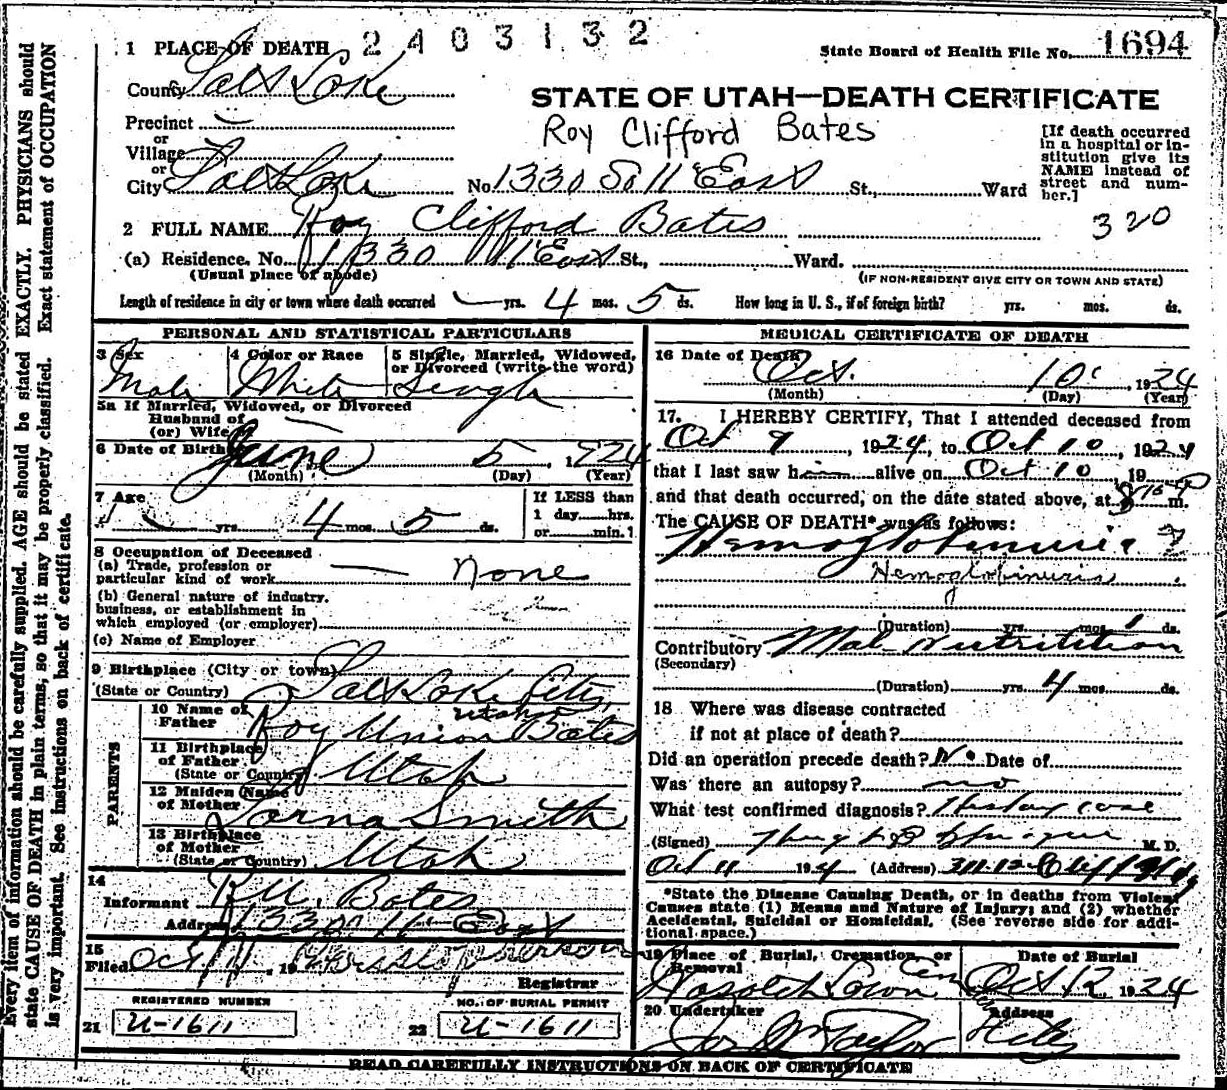 Every item of information should be carefully supplied. AGE should be stated EXACTLY. PHYSICIANS should
state CAUSE OF DEATH in plain terms, so that it may be properly classified. Exact statement of OCCUPATION
is very important. See instructions on back of certificate.
2403132
1 PLACE OF DEATH
State Board of Health File No. 1694
County Salt Lake
STATE OF UTAH—DEATH CERTIFICATE
Precinct
or
Village
or
Roy Clifford Bates
[If death occurred
in a hospital or in-
stitution give its
NAME instead of
street and num-
ber.]
City Salt Lake No. 1330 So 11 East St., Ward
320
2 FULL NAME Roy Clifford Bates
(a) Residence. No. 1330 11 East St., Ward.
(Usual place of abode) (IF NON-RESIDENT GIVE CITY OR TOWN AND STATE)
Length of residence in city or town where death occurred yrs. 4 mos. 5 ds. How long in U. S., if of foreign birth? yrs. mos. ds.
PERSONAL AND STATISTICAL PARTICULARS
3 Sex
Male
4 Color or Race
White
5 Single, Married, Widowed,
or Divorced (write the word)
Single
5a If Married, Widowed, or Divorced
Husband of
(or) Wife
6 Date of Birth June 5, 1924
(Month) (Day) (Year)
7 Age
yrs. 4 mos. 5 ds.
If LESS than
1 day hrs.
or min.
8 Occupation of Deceased
(a) Trade, profession or
particular kind of work None
(b) General nature of industry,
business, or establishment in
which employed (or employer)
(c) Name of Employer
9 Birthplace (City or town)
(State or Country) Salt Lake City,
Utah
PARENTS
10 Name of
Father Roy Union Bates
11 Birthplace
of Father
(State or Country) Utah
12 Maiden Name
of Mother Lorna Smith
13 Birthplace
of Mother
(State or Country) Utah
14
Informant R.U. Bates
Address 1330 11 East
15
Filed Oct 11, 19
Registrar
REGISTERED NUMBER
21 U-1611
NO. OF BURIAL PERMIT
22 U-1611
MEDICAL CERTIFICATE OF DEATH
16 Date of Death
Oct. 10, 1924
(Month) (Day) (Year)
17. I HEREBY CERTIFY, That I attended deceased from
Oct 9, 1924, to Oct 10, 1924
that I last saw him alive on Oct 10 19
and that death occurred, on the date stated above, at 8 P m.
The CAUSE OF DEATH* was as follows:
Hemoglobinuria
Hemoglobinuria
(Duration) yrs. mos. 1 ds.
Contributory Mal-Nutrition
(Secondary)
(Duration) yrs. 4 mos. ds.
18 Where was disease contracted
if not at place of death?
Did an operation precede death? No Date of
Was there an autopsy? no
What test confirmed diagnosis? History case
(Signed) M. D.
Oct 11 1924 (Address) 311-12
*State the Disease Causing Death, or in deaths from Violent
Causes state (1) Means and Nature of Injury; and (2) whether
Accidental, Suicidal or Homicidal. (See reverse side for addi-
tional space.)
19 Place of Burial, Cremation, or
Removal
Wasatch Lawn Cem
Date of Burial
Oct 12 1924
20 Undertaker
Jos Wm Taylor
Address
City
READ CAREFULLY INSTRUCTIONS ON BACK OF CERTIFICATE